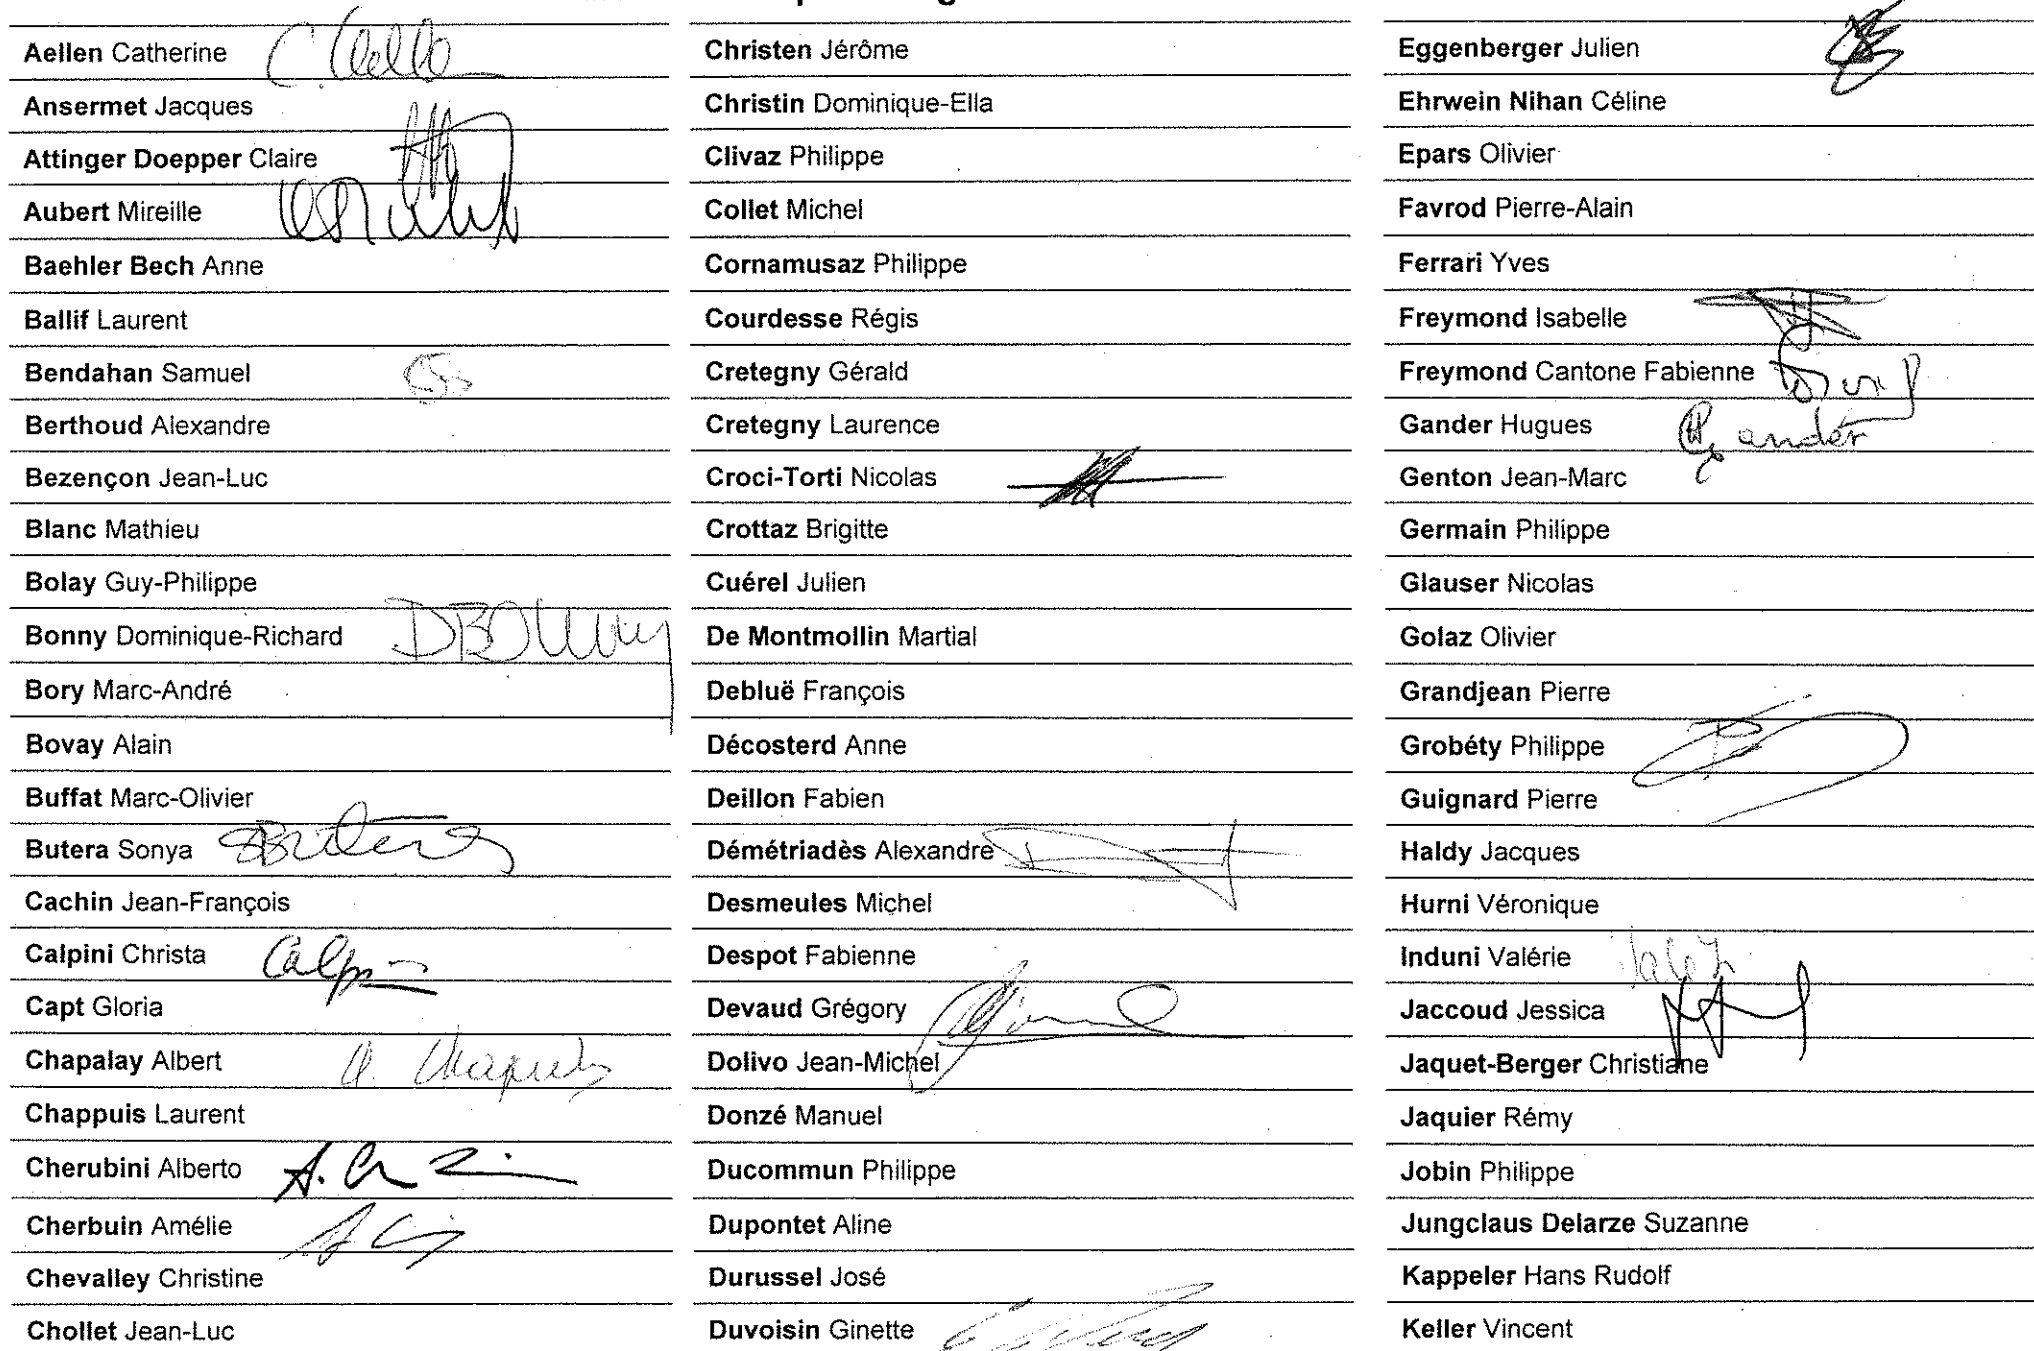 Aellen Catherine C. Aellen
Ansermet Jacques
Attinger Doepper Claire
Aubert Mireille
Baehler Bech Anne
Ballif Laurent
Bendahan Samuel
Berthoud Alexandre
Bezençon Jean-Luc
Blanc Mathieu
Bolay Guy-Philippe
Bonny Dominique-Richard DBonny
Bory Marc-André
Bovay Alain
Buffat Marc-Olivier
Butera Sonya SButera
Cachin Jean-François
Calpini Christa Calpini
Capt Gloria
Chapalay Albert A. Chapalay
Chappuis Laurent
Cherubini Alberto
Cherbuin Amélie
Chevalley Christine
Chollet Jean-Luc
Christen Jérôme
Christin Dominique-Ella
Clivaz Philippe
Collet Michel
Cornamusaz Philippe
Courdesse Régis
Cretegny Gérald
Cretegny Laurence
Croci-Torti Nicolas
Crottaz Brigitte
Cuérel Julien
De Montmollin Martial
Debluë François
Décosterd Anne
Deillon Fabien
Démétriadès Alexandre
Desmeules Michel
Despot Fabienne
Devaud Grégory
Dolivo Jean-Michel
Donzé Manuel
Ducommun Philippe
Dupontet Aline
Durussel José
Duvoisin Ginette
Eggenberger Julien
Ehrwein Nihan Céline
Epars Olivier
Favrod Pierre-Alain
Ferrari Yves
Freymond Isabelle
Freymond Cantone Fabienne
Gander Hugues Gander
Genton Jean-Marc
Germain Philippe
Glauser Nicolas
Golaz Olivier
Grandjean Pierre
Grobéty Philippe
Guignard Pierre
Haldy Jacques
Hurni Véronique
Induni Valérie
Jaccoud Jessica
Jaquet-Berger Christiane
Jaquier Rémy
Jobin Philippe
Jungclaus Delarze Suzanne
Kappeler Hans Rudolf
Keller Vincent